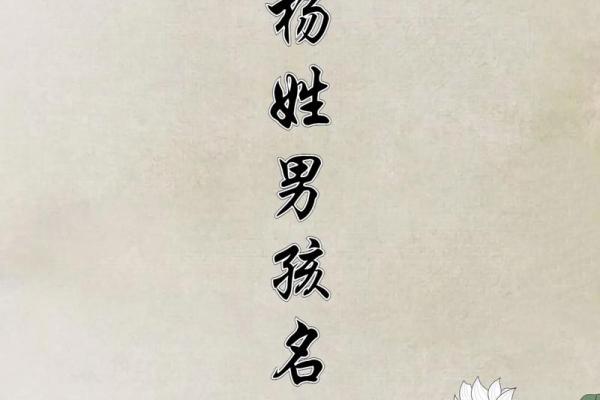 杨姓男孩名